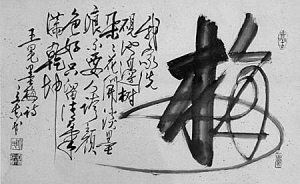 梅
我家洗
砚池边树
朵々花開淡墨
痕不要人誇顏
色好只留清氣
满乾坤
王冕墨梅詩